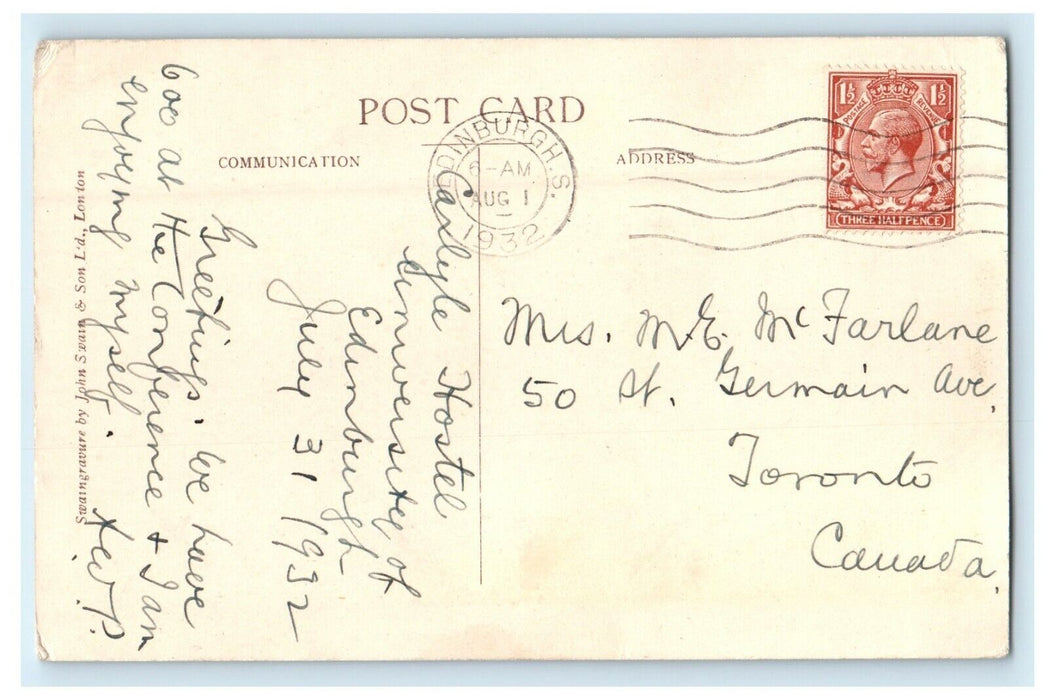 POST CARD
COMMUNICATION
ADDRESS
EDINBURGH.S.
6-AM
AUG 1
1932
1½ 1½
POSTAGE REVENUE
THREE HALFPENCE
Carlyle Hostel
University of
Edinburgh
July 31 1932
Greetings. We have
600 at the Conference & I am
enjoying myself.
Mrs. M.E. McFarlane
50 St. Germain Ave.
Toronto
Canada.
Swaingravure by John Swain & Son L'd., London